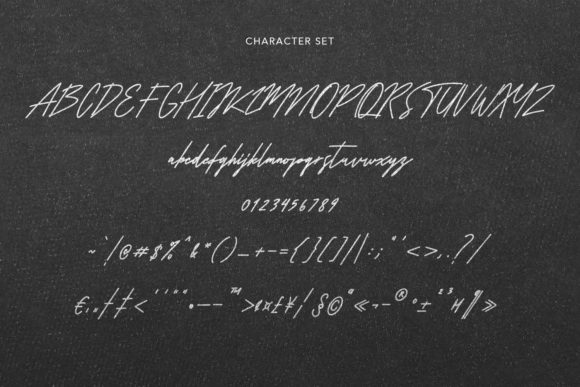 CHARACTER SET
ABCDEFGHIJKLMNOPQRSTUVWXYZ
abcdefghijklmnopqrstuvwxyz
0123456789
~`!@#$%^&*()_+-={}[]||:;"'<>,.?/
€‚„†‡‹‘’“”•–—™›¢¤£¥¦§©ª«¬-®°±²³µ¶»